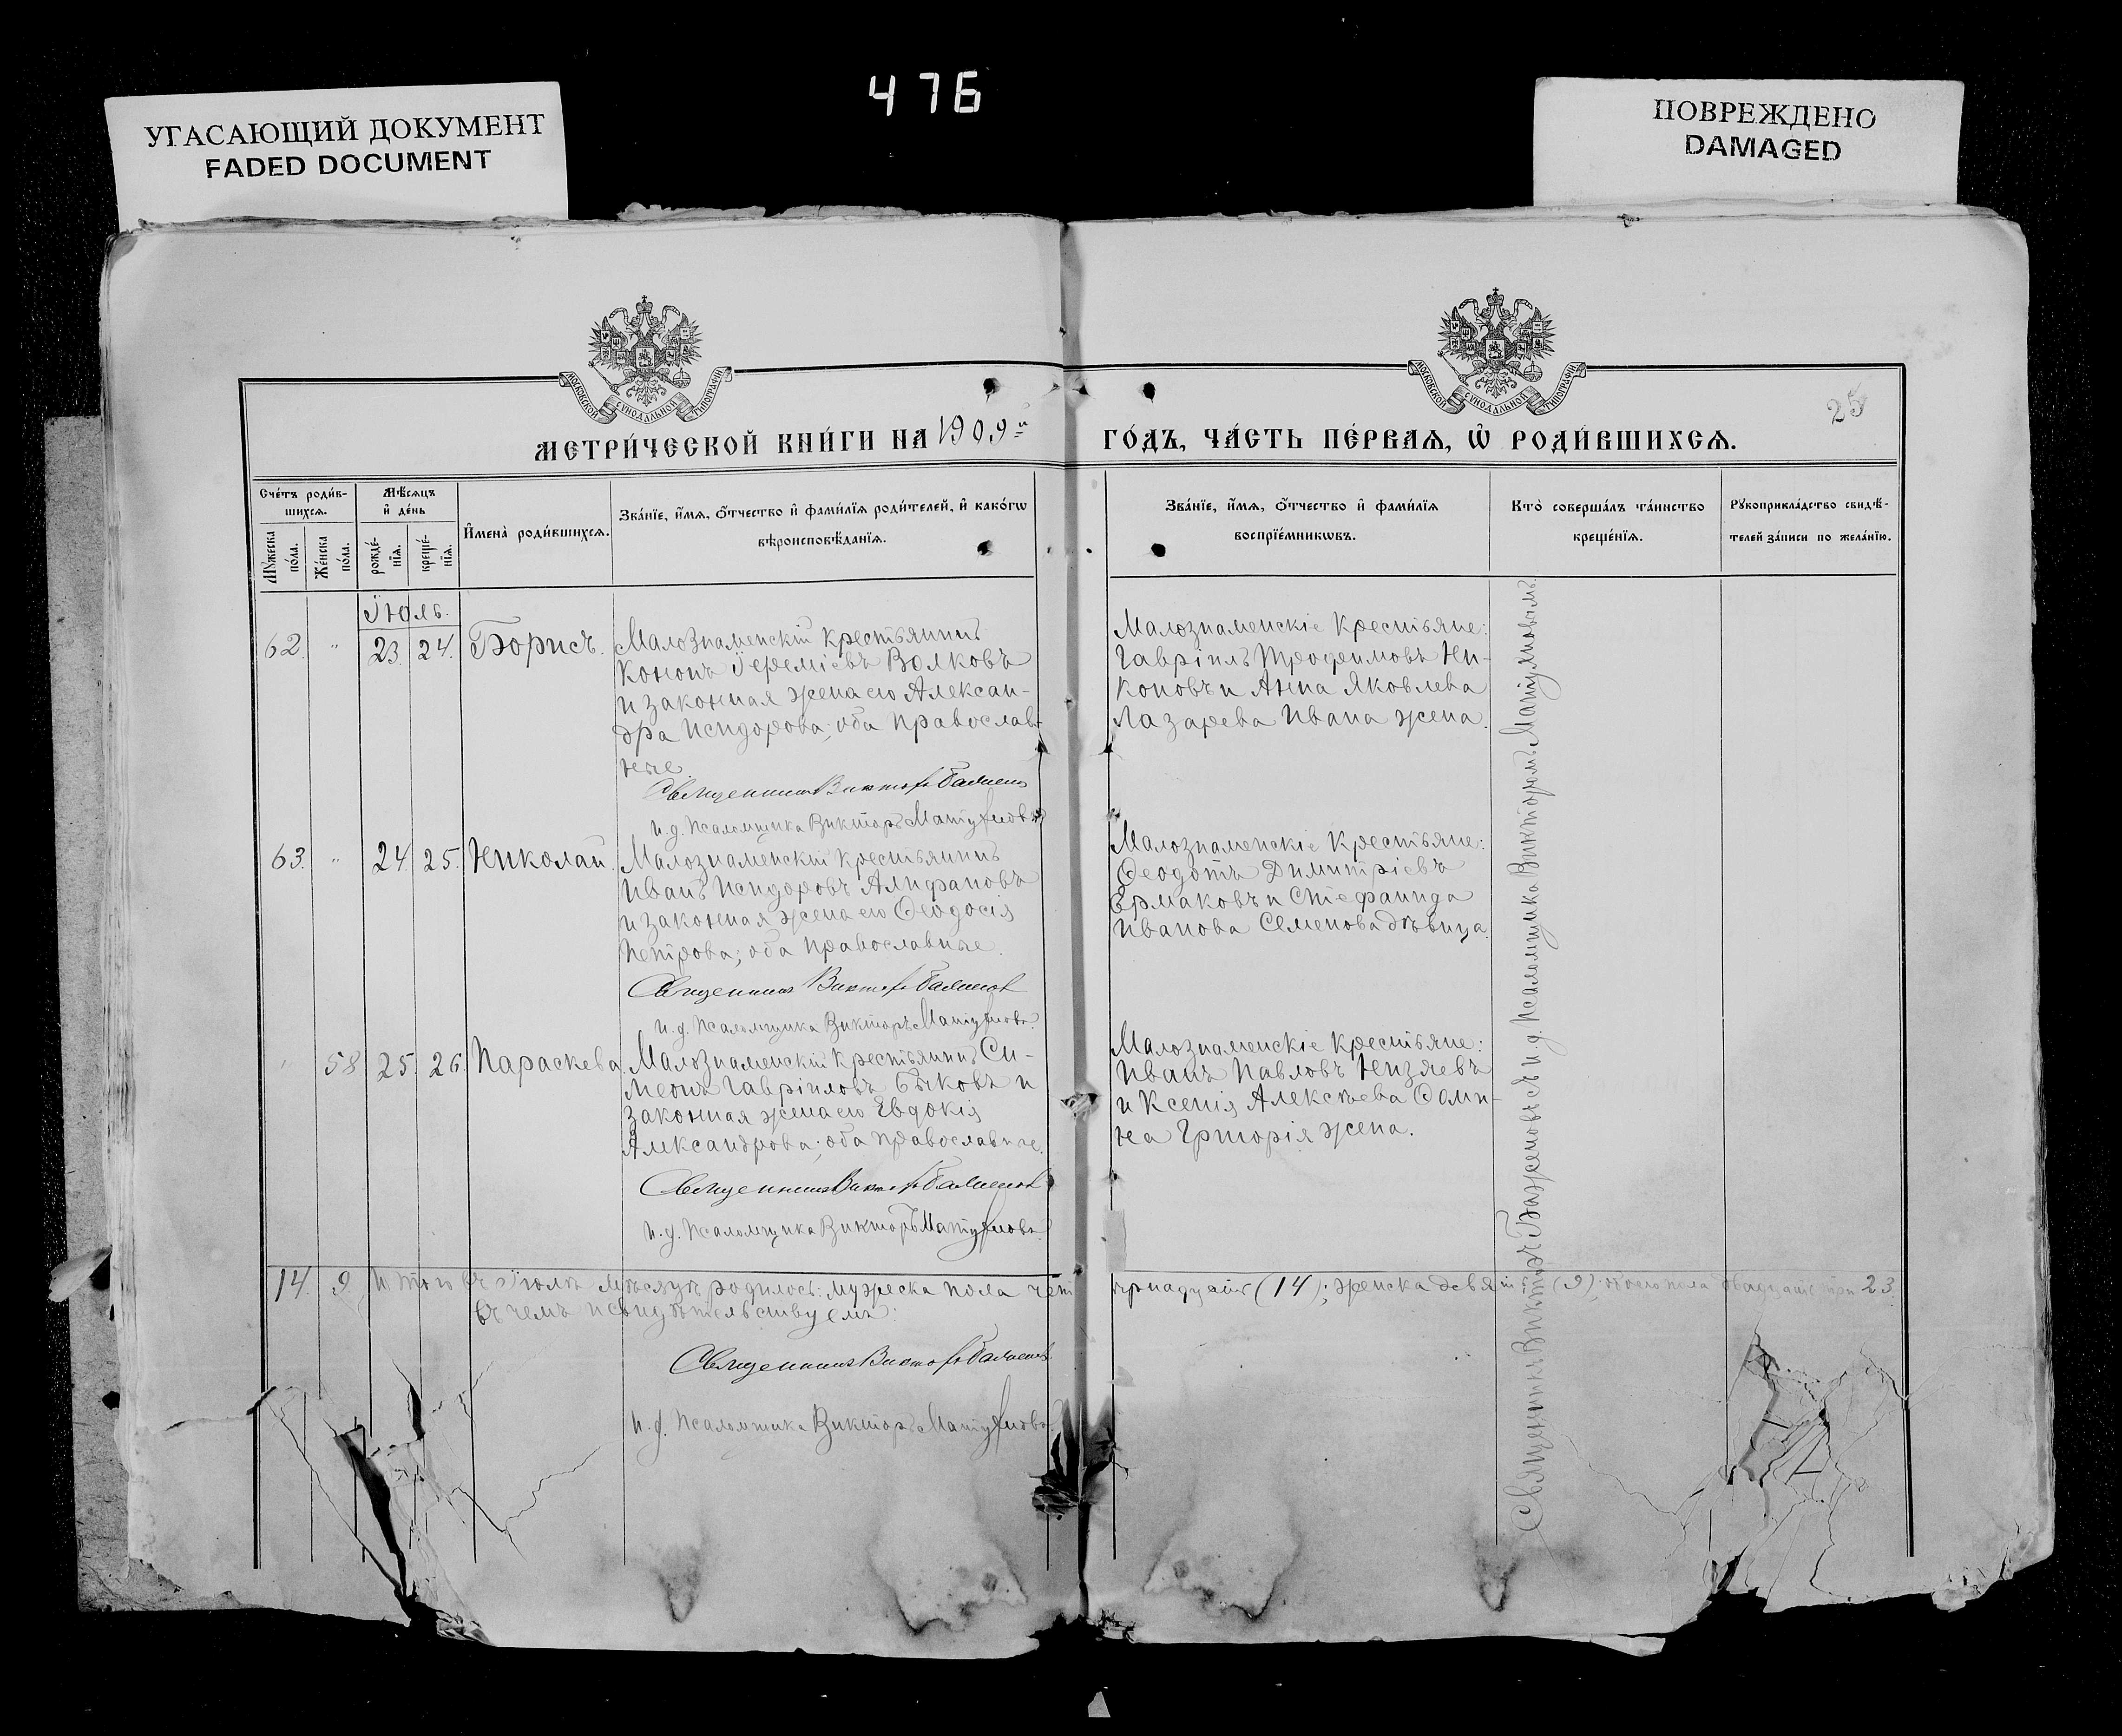 476
УГАСАЮЩИЙ ДОКУМЕНТ
FADED DOCUMENT
ПОВРЕЖДЕНО
DAMAGED
МОСКОВСКОЙ СѴНОДАЛЬНОЙ ТИПОГРАФІИ
МОСКОВСКОЙ СѴНОДАЛЬНОЙ ТИПОГРАФІИ
25
МЕТРИ́ЧЕСКОЙ КНИ́ГИ НА 1909й ГО́ДЪ, ЧА́СТЬ ПЕ́РВАѦ, Ѽ РОДИ́ВШИХСѦ.
Сче́тъ роди́в-
шихсѧ.
Мꙋ́жеска по́ла.
Же́нска по́ла.
Мѣ́сѧцъ
и҆ де́нь
рожде́-
нїѧ.
креще́-
нїѧ.
И҆мена̀ роди́вшихсѧ.
Зва́нїе, и҆́мѧ, ѻ҆́тчество и҆ фами́лїѧ роди́телей, и҆ како́гѡ
вѣроисповѣ́данїѧ.
Зва́нїе, и҆́мѧ, ѻ҆́тчество и҆ фами́лїѧ
воспрїе́мникѡвъ.
Кто̀ соверша́лъ та́инство
креще́нїѧ.
Рꙋкоприкла́дство свидѣ́-
телей за́писи по жела́нїю.
Іюль.
62. " 23. 24. Борисъ.
Малознаменскій крестьянинъ
Кононъ Іереміевъ Волковъ
и законная жена его Алексан-
дра Исидорова; оба православ-
ные.
Священникъ Викторъ Баженов
и.д. Псаломщика Викторъ Матухновъ
Малознаменскіе крестьяне:
Гавріилъ Трофимовъ Ни-
коновъ и Анна Яковлева
Лазарева Ивана жена.
63. " 24. 25. Николай.
Малознаменскій крестьянинъ
Иванъ Исидоровъ Алифановъ
и законная жена его Ѳеодосія
Петрова; оба православные.
Священникъ Викторъ Баженов
и.д. Псаломщика Викторъ Матухновъ.
Малознаменскіе крестьяне:
Ѳеодотъ Димитріевъ
Ермаковъ и Стефанида
Иванова Семенова дѣвица.
" 58 25. 26. Параскева.
Малознаменскій крестьянинъ Си-
меонъ Гавріиловъ Быковъ и
законная жена его Евдокія
Александрова; оба православные.
Священникъ Викторъ Баженов
и.д. Псаломщика Викторъ Матухновъ.
Малознаменскіе крестьяне:
Иванъ Павловъ Низяевъ
и Ксенія Алексѣева Ѳоми-
на Григорія жена.
Священникъ Викторъ Баженовъ съ и.д. Псаломщика Викторомъ Матухновымъ.
14. 9. Итого въ Іюлѣ мѣсяцѣ родилось: мужеска пола чет
ырнадцать (14); женска девять (9); обоего пола двадцать три 23.
въ чемъ и свидѣтельствуемъ:
Священникъ Викторъ Баженов.
и.д. Псаломщика Викторъ Матухновъ.